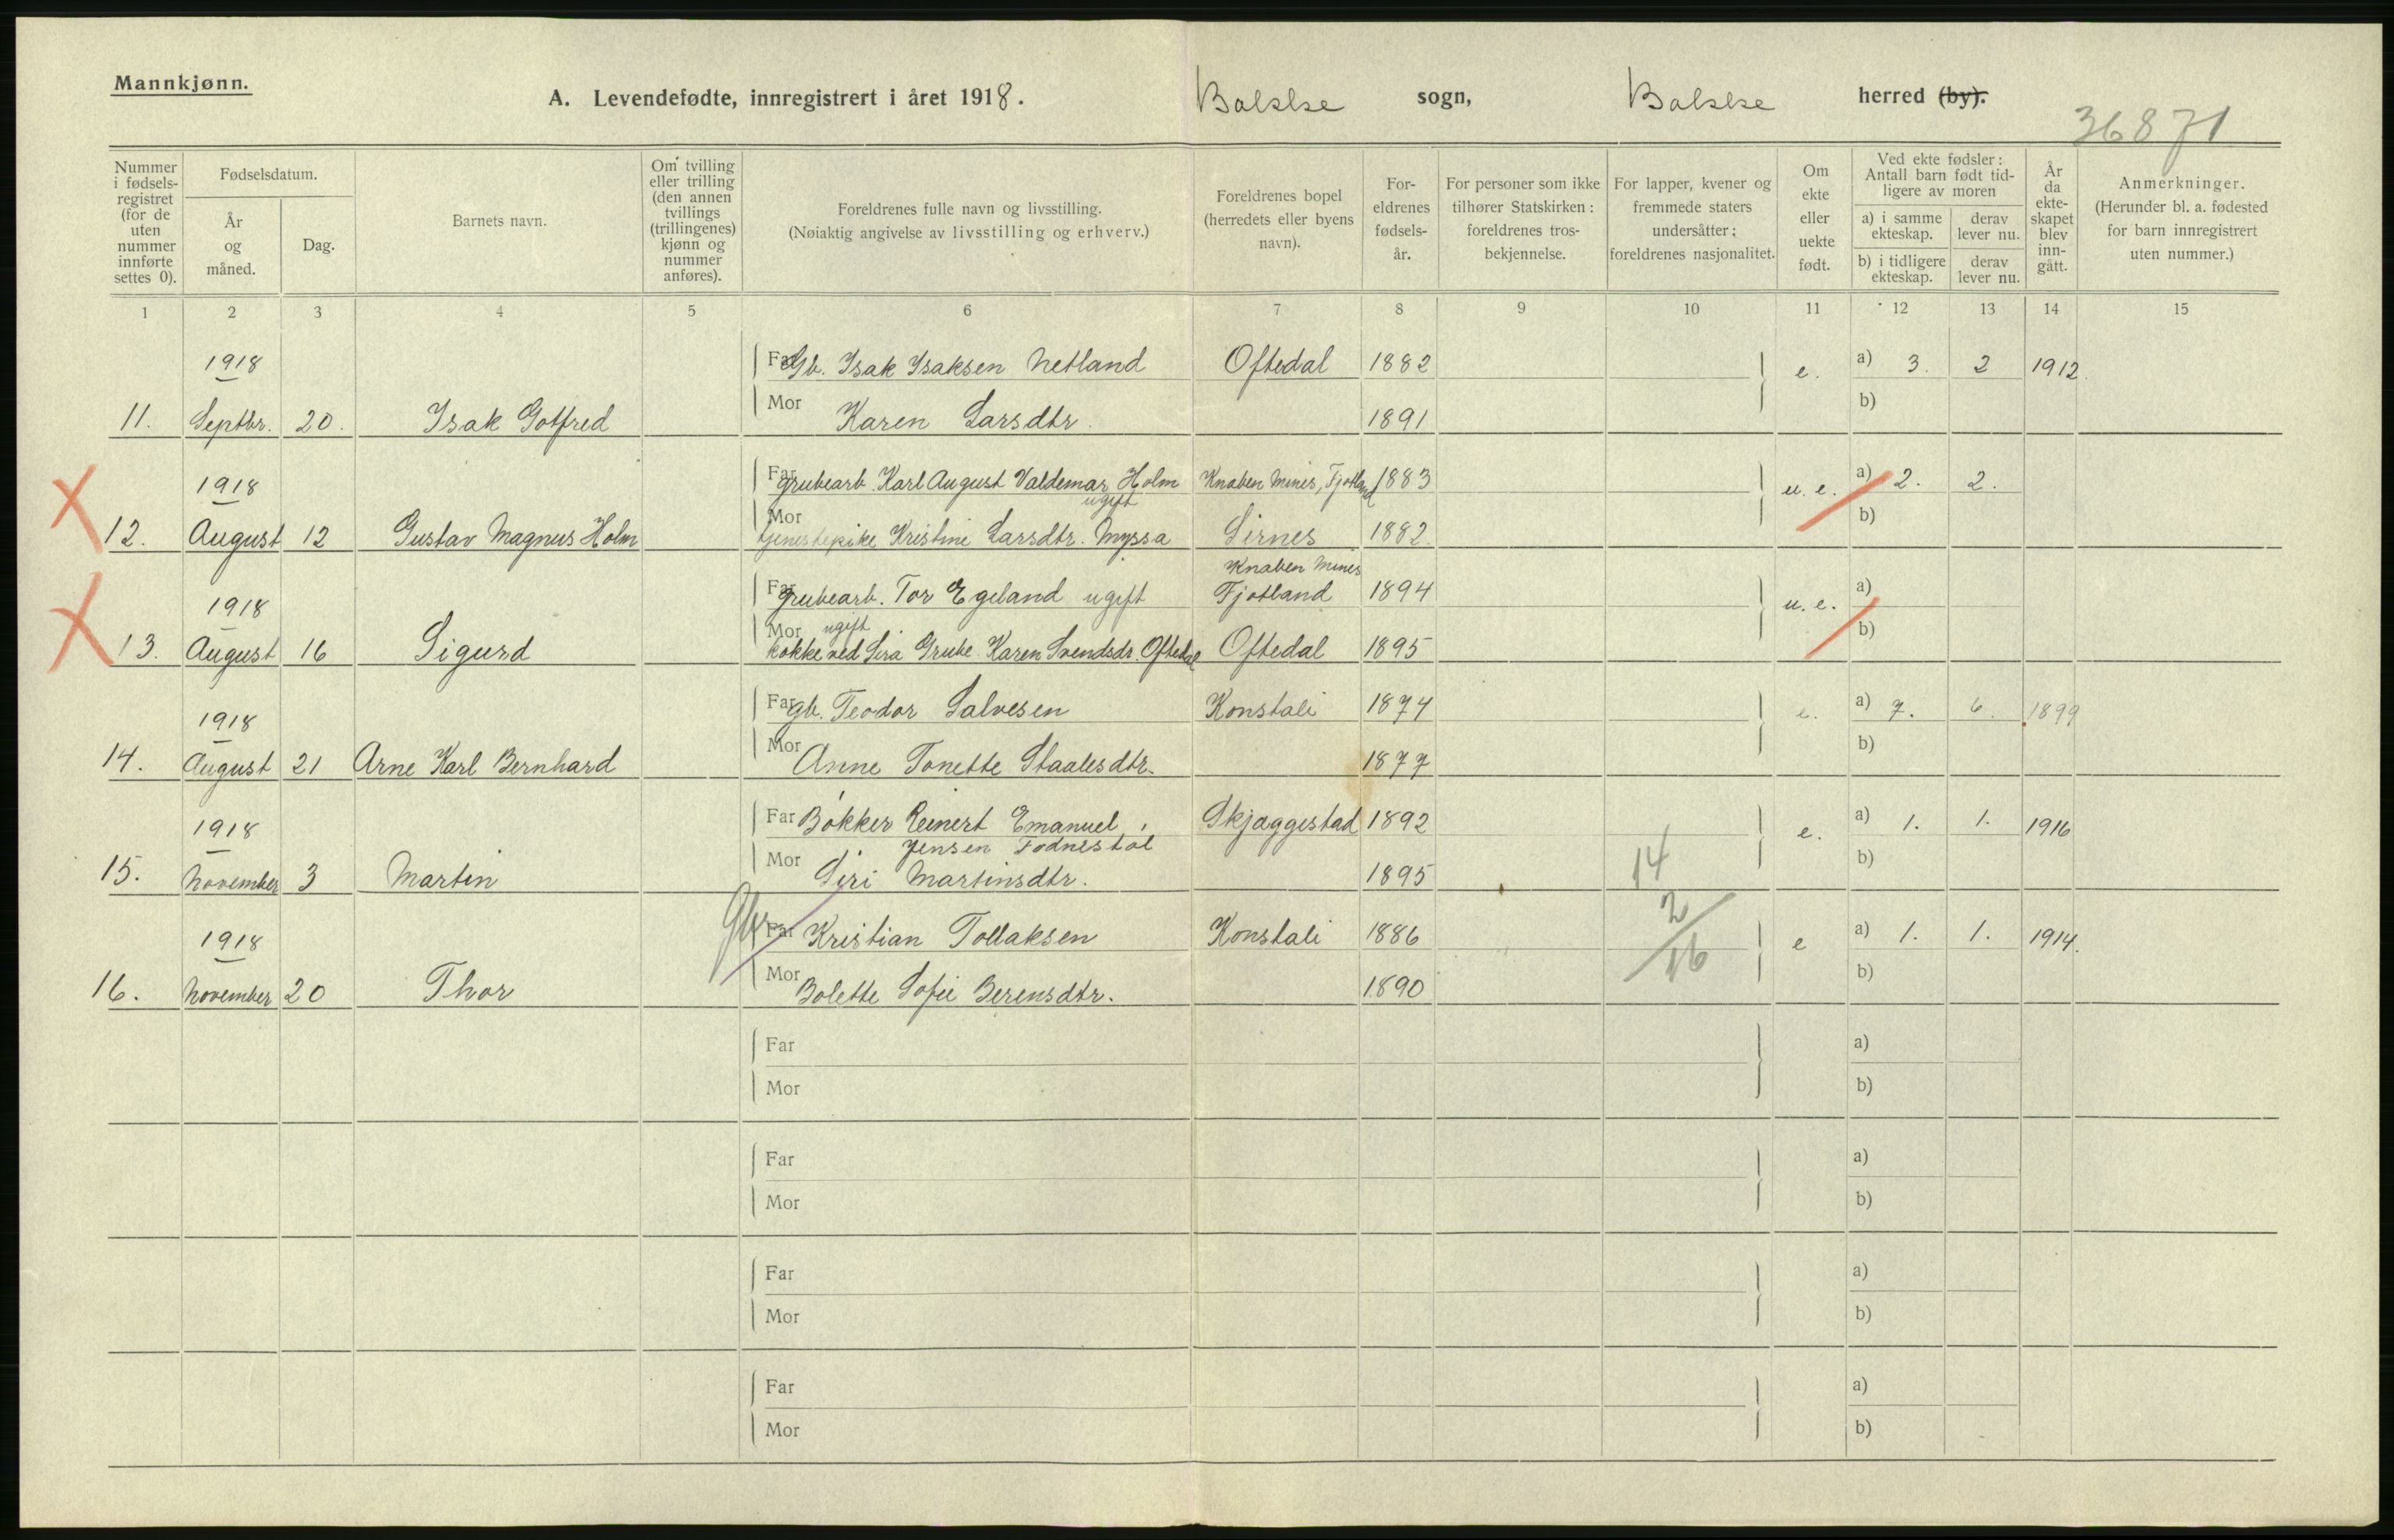 Mannkjønn.
A. Levendefødte, innregistrert i året 1918. Bakke sogn, Bakke herred (by).
36871
Nummer i fødsels-registret (for de uten nummer innførte settes 0).
Fødselsdatum.
År og måned.
Dag.
Barnets navn.
Om tvilling eller trilling (den annen tvillings (trillingenes) kjønn og nummer anføres).
Foreldrenes fulle navn og livsstilling.
(Nøiaktig angivelse av livsstilling og erhverv.)
Foreldrenes bopel (herredets eller byens navn).
For-eldrenes fødsels-år.
For personer som ikke tilhører Statskirken: foreldrenes tros-bekjennelse.
For lapper, kvener og fremmede staters undersåtter; foreldrenes nasjonalitet.
Om ekte eller uekte født.
Ved ekte fødsler: Antall barn født tid-ligere av moren
a) i samme ekteskap. derav lever nu.
b) i tidligere ekteskap. derav lever nu.
År da ekte-skapet blev inn-gått.
Anmerkninger.
(Herunder bl. a. fødested for barn innregistrert uten nummer.)
1 2 3 4 5 6 7 8 9 10 11 12 13 14 15
1918 Far Gb. Isak Isaksen Netland Oftedal 1882 e. a) 3. 2 1912.
11. Septbr. 20. Isak Gotfred Mor Karen Larsdtr. 1891 b)
1918 Far grubearb. Karl August Valdemar Holm Knaben Mines, Fjotland 1883 u. e. a) 2. 2.
ugift
12. August 12 Gustav Magnus Holm Mor tjenestepike Kristine Larsdtr. Myssa Sirnes 1882. b)
Knaben Mines
1918 Far grubearb. Tor Egeland ugift Fjotland 1894 u. e. a)
ugift
13. August 16 Sigurd Mor kokke ved Sira Grube Karen Svendsdr. Oftedal Oftedal 1895 b)
1918 Far gb. Teodor Salvesen Konstali 1874 e. a) 7. 6. 1899
14. August 21 Arne Karl Bernhard Mor Anne Tonette Staalesdtr. 1877 b)
1918 Far Bøkker Reinert Emanuel Skjaggestad 1892 e. a) 1. 1. 1916
Jensen Fodnestøl
15. November 3 Martin Mor Siri Martinsdtr. 1895 14 b)
1918 Gbr Far Kristian Tollaksen Konstali 1886 2 e a) 1. 1. 1914.
16. November 20 Thor Mor Bolette Sofie Berensdtr. 1890 16 b)
Far a)
Mor b)
Far a)
Mor b)
Far a)
Mor b)
Far a)
Mor b)